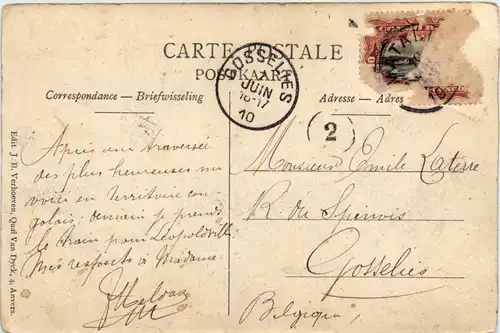 CARTE POSTALE
POSTKAART
Correspondance — Briefwisseling
Adresse — Adres
GOSSELIES
JUIN
16-17
10
2
Edit. J. B. Verhoeven, Quai Van Dyck, 4, Anvers.
Après une traversée
des plus heureuses me
voici en territoire con-
golais; demain je prends
le train pour Léopoldville
Mes respects à Madame.
Monsieur Emile Laterre
R. du Spinois
Gosselies
Belgique